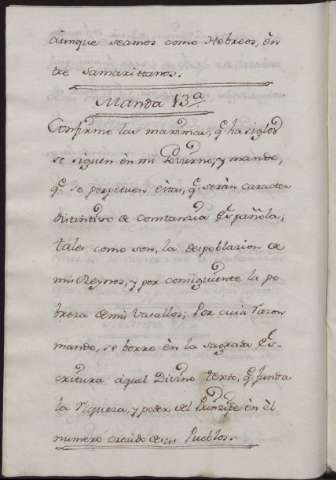 aunque seamos como Hebreos, èn
tre Samaritanos.
Manda 13ª
Confirmo las maximas, q.e ha siglos
se siguen en mi Govierno, y mando,
q.e se perpetuen èstas, q.e seràn caracter
distintivo de constancia Española,
tales como son, la despoblacion de
mis Reynos, y por consiguiente la po
breza de mis Vasallos; Por cuia razon
mando, se borre èn la sagrada Es-
critura aquel Divino texto, q.e funda
la riqueza, y poder del Principe èn èl
numero crecido de sus Pueblos.